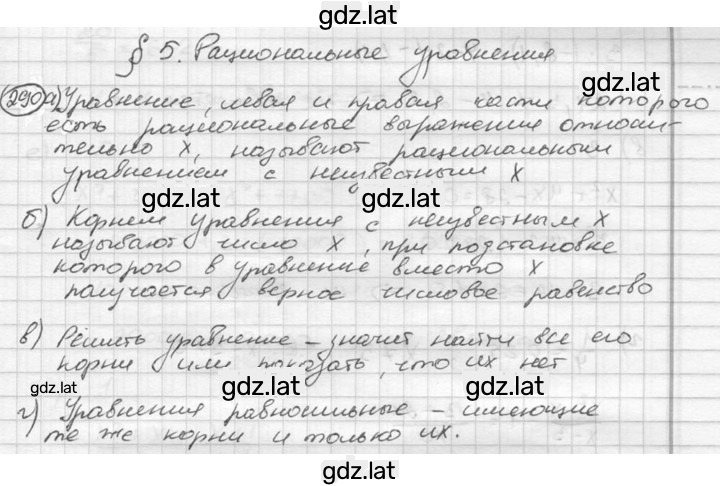 gdz.lat
§ 5. Рациональные уравнения
290 а) Уравнение, левая и правая части, которого
gdz.lat
есть рациональные выражения относи-
тельно х, называют рациональным
gdz.lat
уравнением с неизвестным х
gdz.lat
gdz.lat
б) Корнем уравнения с неизвестным х
называют число х, при подстановке
gdz.lat
которого в уравнение вместо х
получается верное числовое равенство
в) Решить уравнение – значит найти все его
корни или показать, что их нет
gdz.lat
gdz.lat
gdz.lat
г) Уравнения равносильные – имеющие
те же корни и только их.
gdz.lat